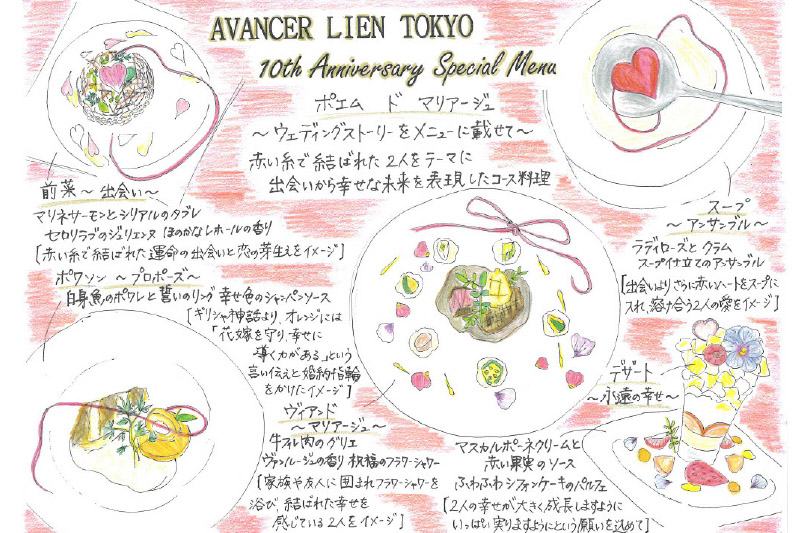 AVANCER LIEN TOKYO
10th Anniversary Special Menu
ポエム ド マリアージュ
～ウェディングストーリーをメニューに載せて～
赤い糸で結ばれた2人をテーマに
出会いから幸せな未来を表現したコース料理
前菜～出会い～
マリネサーモンとシリアルのタブレ
セロリラブのジュリエンヌ ほのかなレホールの香り
[赤い糸で結ばれた運命の出会いと恋の芽生えをイメージ]
スープ
～アンサンブル～
ラディローズとクラム
スープ仕立てのアンサンブル
[出会いよりさらに赤いハートをスープに
入れ、溶け合う2人の愛をイメージ]
ポワソン ～プロポーズ～
白身魚のポワレと誓いのリング 幸せ色のシャンパンソース
[ギリシャ神話より、オレンジには
「花嫁を守り、幸せに
導く力がある」という
言い伝えと婚約指輪
をかけたイメージ]
ヴィアンド
～マリアージュ～
牛フィレ肉のグリエ
ヴァンルージュの香り 祝福のフラワーシャワー
[家族や友人に囲まれフラワーシャワーを
浴び、結ばれた幸せを
感じている2人をイメージ]
デザート
～永遠の幸せ～
マスカルポーネクリームと
赤い果実のソース
ふわふわシフォンケーキのパルフェ
[2人の幸せが大きく成長しますように
いっぱい実りますようにという願いを込めて]